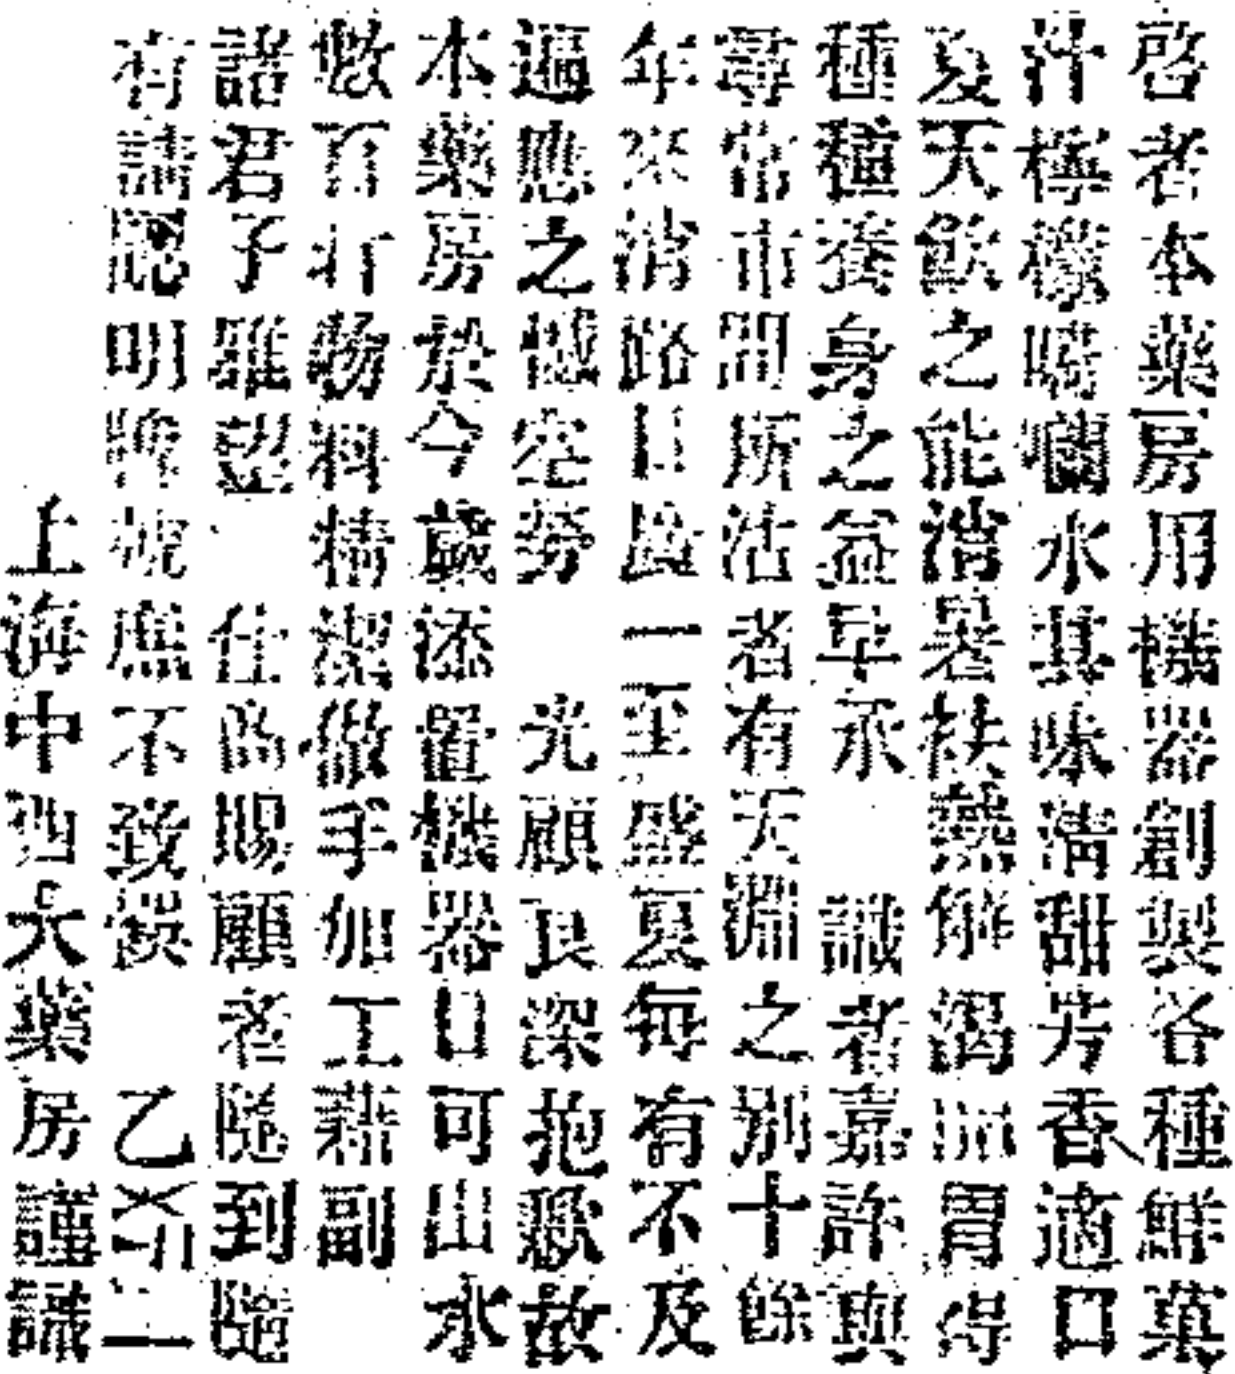 啓者本藥房用機器創製各種鮮菓
汁檸檬嗬囒水其味清甜芳香適口
夏天飲之能消暑祛熱解渴而胃得
種種養身之益早承　識者嘉許與
尋常市間所沽者有天淵之別十餘
年來消路日盛一至盛夏每有不及
遍應之憾空勞　光顧良深抱歉故
本藥房於今歲添置機器日可出水
數百打物料精潔倣手加工藉副
諸君子雅望　仕商賜顧者隨到隨
有請認明牌號庶不致悞　乙 二
上海中西大藥房謹識